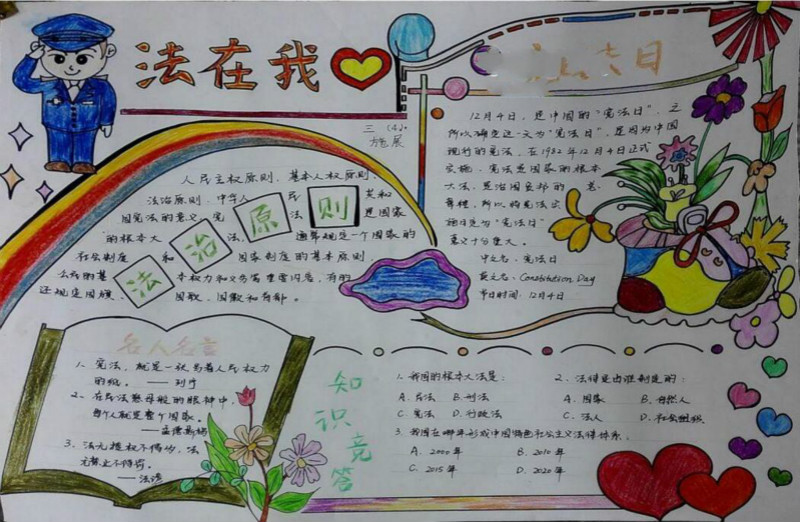 法在我
三（4）
施展
12月4日，是中国的“宪法日”，之
所以确定这一天为“宪法日”，是因为中国
现行的宪法，在1982年12月4日正式
实施，宪法是国家的根本
大法，是治国安邦的 总
章程，所以将宪法实
施日定为“宪法日”
意义十分重大。
中文名：宪法日
英文名：Constitution Day
节日时间：12月4日
人民主权原则、基本人权原则、
法治原则，中华人 民 共和
国宪法的意义，宪 法 是国家
的根本大 法， 通常规定一个国家的
社会制度 和 国家制度的基本原则，
公民的基 本权力和义务等重要内容，有的
还规定国旗、 国歌、国徽和首都。
法治原则
名人名言
1、宪法，就是一张写着人民权力
的纸。——列宁
2、在民法慈母般的眼神中，
每个人就是整个国家。
——孟德斯鸠
3、法无授权不得为，法
无禁止不得罚。
——法谚
知识竞答
1、我国的根本大法是：
A、民法 B、刑法
C、宪法 D、行政法
2、法律是由谁制定的：
A、国家 B、自然人
C、法人 D、社会组织
3、我国在哪年形成中国特色社会主义法律体系。
A、2000年 B、2010年
C、2015年 D、2020年